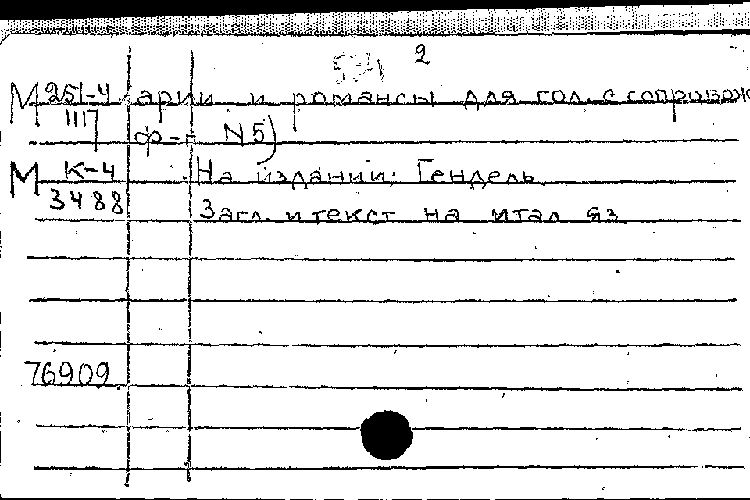 2
М 251-4 арии и романсы для гол. с сопровож
1117 ф-п N5)
М К-4 На издании: Гендель
3488 Загл. и текст на итал яз
76909